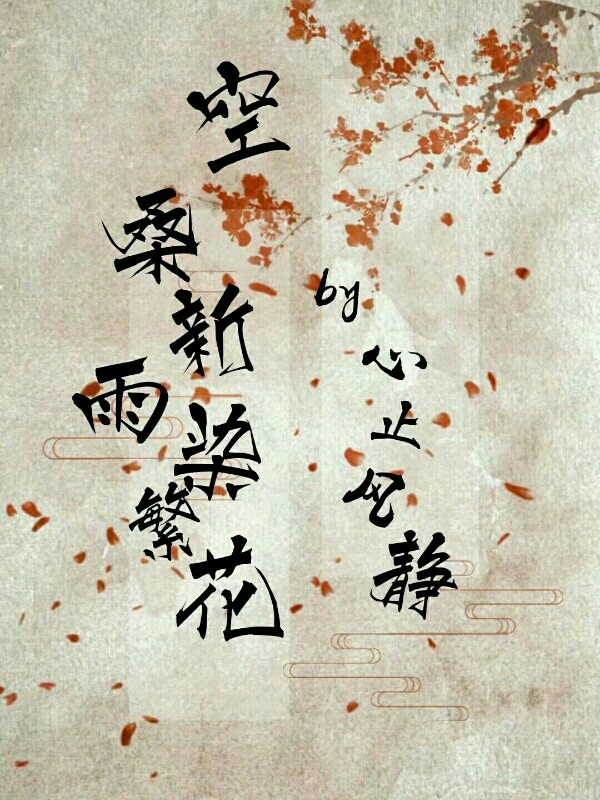 空桑新雨染繁花
by心止风静